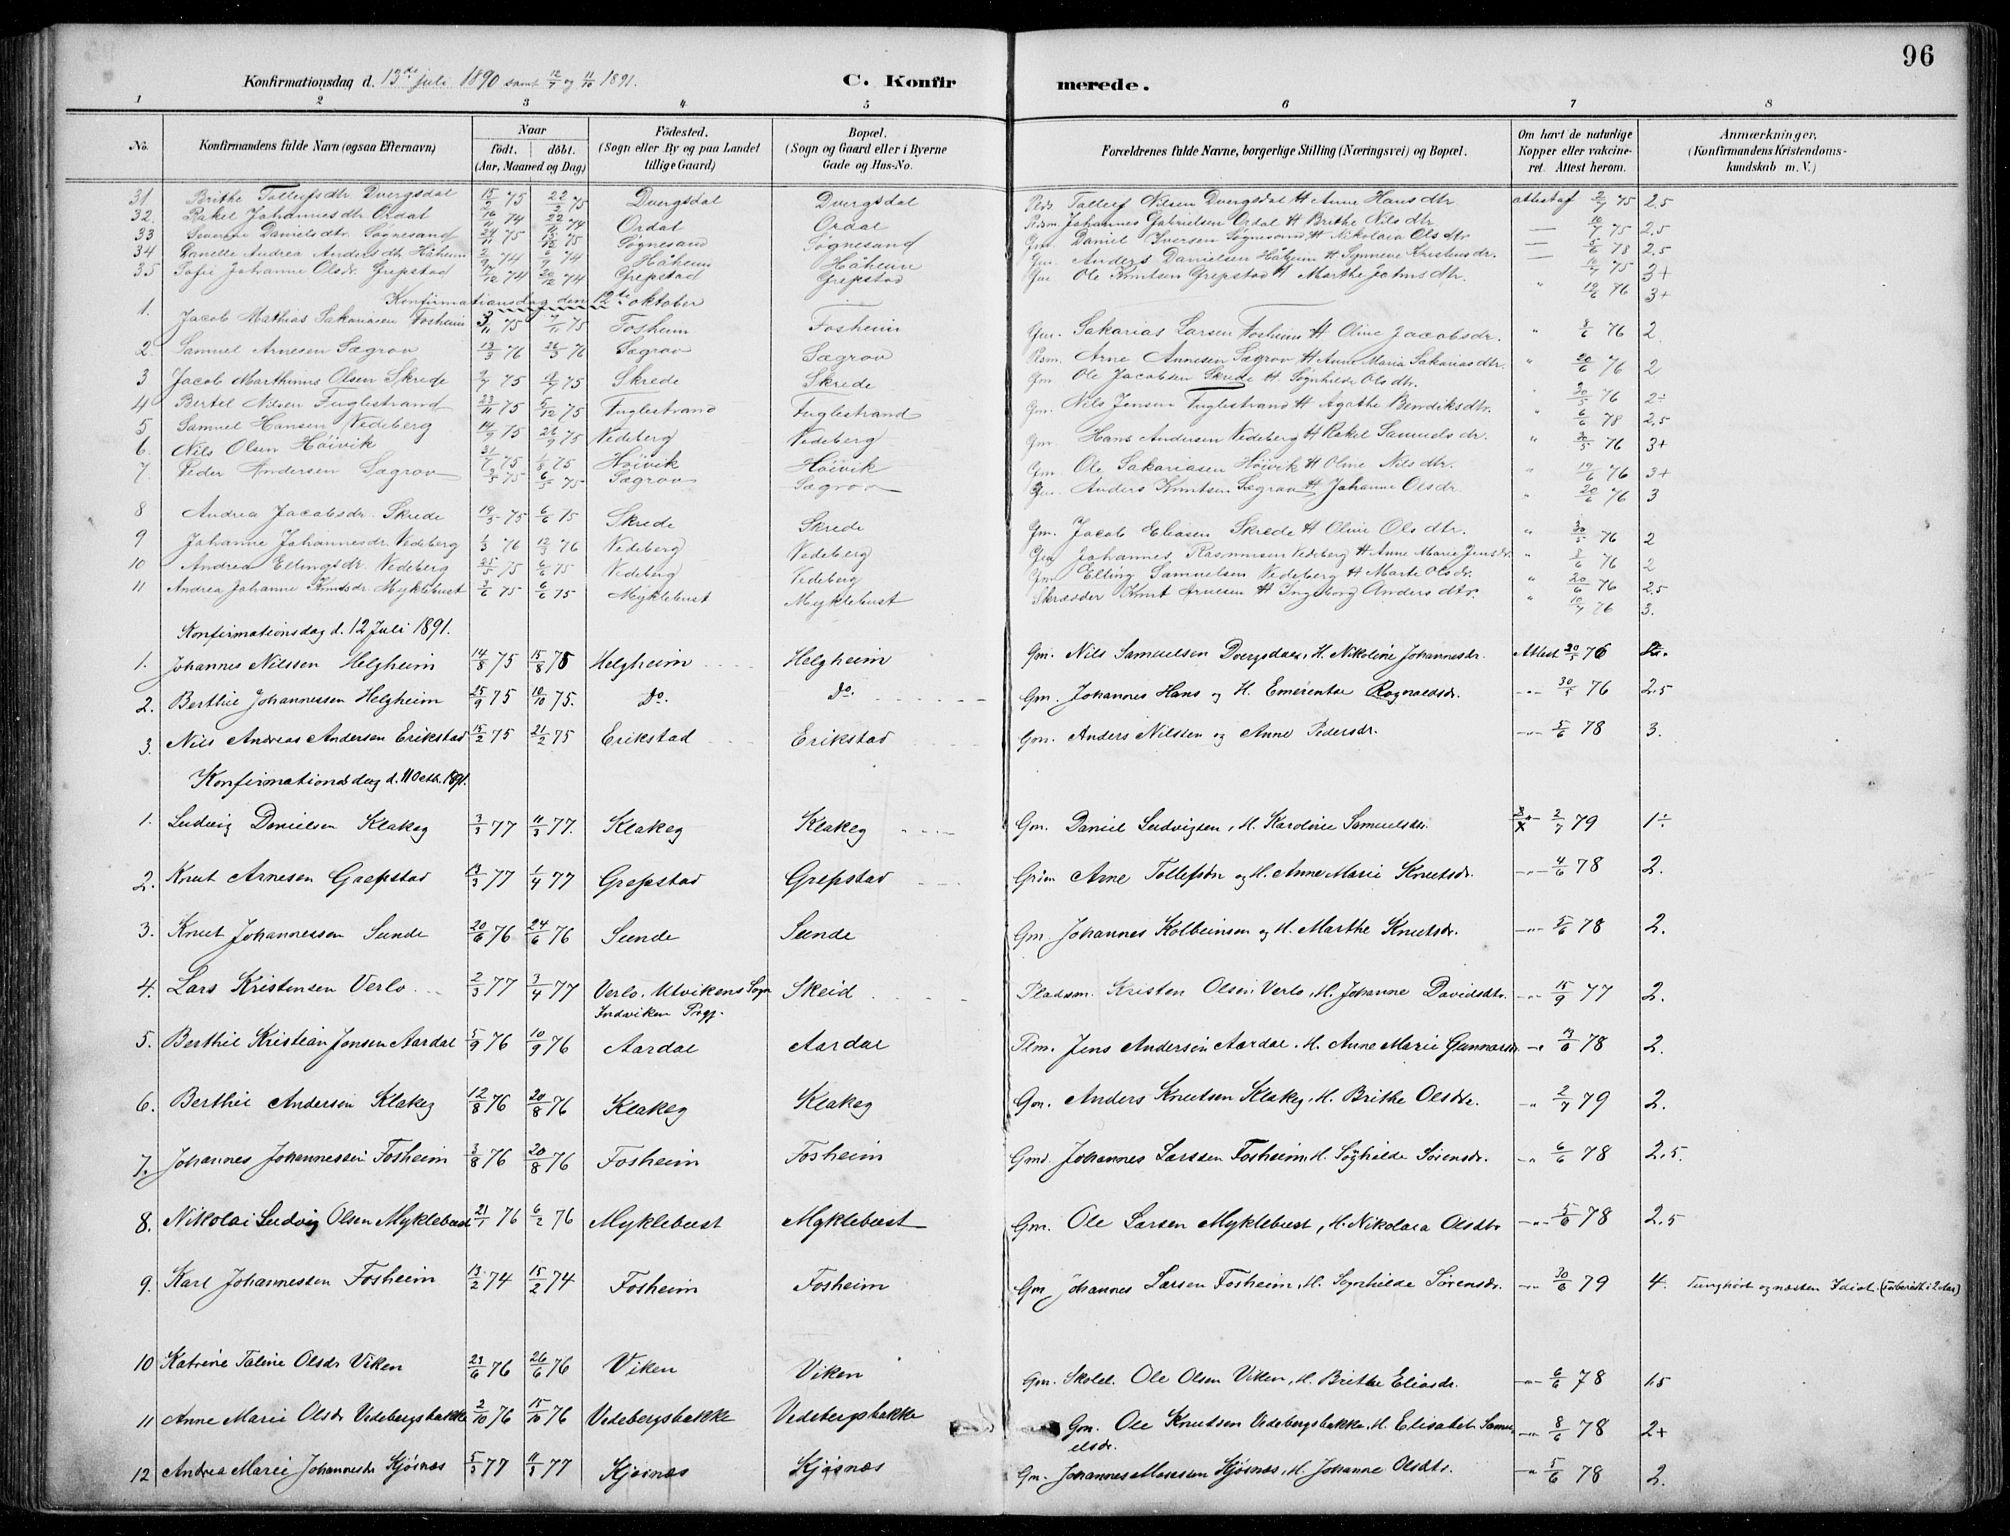 96
Konfirmationsdag d. 13de Juli 1890 samt 12/7 og 11/10 1891.
C. Konfirmerede.
1 2 3 4 5 6 7 8
No. Konfirmandens fulde Navn (ogsaa Efternavn) Naar født. døbt. (Aar, Maaned og Dag) Fødested. (Sogn eller By og paa Landet tillige Gaard) Bopæl. (Sogn og Gaard eller i Byerne Gade og Hus-No. Forældrenes fulde Navne, borgerlige Stilling (Næringsvei) og Bopæl. Om havt de naturlige Kopper eller vaccineret. Attest herom. Anmærkninger, (Konfirmandens Kristendomskundskab m. V.)
31 Brithe Tollefsdtr Dvergsdal 75 75 Dvergsdal Dvergsdal Tollef Nilsen Dvergsdal H Anne Hansdtr attest af 75 2,5
32. Rakel Johannesdtr Ordal 74 74 Ordal Ordal Johannes Gabrielsen Ordal H Brithe Nilsdtr 75 2,5
33 Severine Danielsdtr. Søgnesand 75 75 Søgnesand Søgnesand Gm Daniel Iversen Søgnesand H Nikolaia Olsdtr 78 2,5
34 Danelle Andrea Andersdtr Håheim 74 74 Håheim Håheim Gm Anders Danielsen Håheim H Synneve Kristensdr. 75 3+
35 Sofie Johanne Olsdr. Grepstad 74 20/12 74 Grepstad Grepstad Gm Ole Knutsen Grepstad H Marthe Jetmsdtr. " 76 3+
Konfirmationsdag den 12te oktober
1. Jacob Mathias Sakariasen Fosheim 3/11 75 7/11 75 Fosheim Fosheim Gm. Sakarias Larsen Fosheim H Oline Jacobsdr. " 8/6 76 2
2. Samuel Arnesen Sægrov 13/3 76 26/3 76 Sægrov Sægrov Arne Annesen Sægrov H Anne Maria Sakariasdtr. " 20/6 76 2
3 Jacob Marthinus Olsen Skrede 75 75 Skrede Skrede Gm Ole Jacobsen Skrede H. Søgnhilde Olsdtr. " 76 2÷
4 Bertel Nilsen Fuglestrand 23/11 75 5/12 75 Fuglestrand Fuglestrand Gm. Nils Jensen Fuglestrand H Agathe Bendiksdtr. " 6/6 78 2,5
5 Samuel Hansen Vedeberg 14/9 75 26/9 75 Vedeberg Vedeberg Gm. Hans Andersen Vedeberg H Rakel Samuelsdr. " 76 3+
6. Nils Olsen Høivik 31/7 75 1/8 75 Høivik Høivik Gm. Ole Sakariasen Høivik H Oline Nilsdtr. " 19/6 76 3+
7 Peder Andersen Sægrov 75 6/5 75 Sægrov Sægrov Gm. Anders Knutsen Sægrov H Johanne Olsdr. " 20/6 76 3
8 Andrea Jacobsdr. Skrede 19/5 75 6/6 75 Skrede Skrede Gm. Jacob Eliasen Skrede H Oline Olsdtr. " 30/5 76 2
9 Johanne Johannesdr. Vedeberg 1/3 76 12/3 76 Vedeberg Vedeberg Johannes Rasmussen Vedeberg H Anne Marie Jensdr. " 8/6 76 2
10 Andrea Ellingsdr. Vedeberg 25/5 75 6/6 75 Vedeberg Vedeberg Gm Elling Samuelsen Vedeberg H Marte Olsdr. " 20/6 76 2,5
11 Andrea Johanne Knutsdr Myklebust 3/6 75 6/6 75 Myklebust Myklebust Skrædder Knut Arnesen H Ingeborg Andersdtr. " 10/7 76 3.
Konfirmationsdag d. 12 Juli 1891.
1. Johannes Nilssen Helgheim 14/8 75 15/8 75 Helgheim Helgheim Gm. Nils Samuelsen Dvergsdal, H. Nikoline Johannesdr. Attest 20/5 76
2. Berthie Johannessen Helgheim 25/9 75 10/10 75. Do. Do. Gm. Johannes Hans og H. Emerentse Rognaldsdr. -"- 30/5 76 2,5
3. Nils Andreas Andersen Erikstad 15/2 75 21/2 75 Erikstad Erikstad Gm. Anders Nilssen og Anne Pedersdr. -"- 5/6 78 3.
Konfirmationsdag d. 11 Octb. 1891.
1. Ludvig Danielsen Klakeg 3/3 77 11/3 77. Klakeg Klakeg Gm. Daniel Ludvigsen, H. Karoline Samuelsdr. 2/7 79 1÷
2. Knut Arnesen Grepstad 13/3 77 1/4 77 Grepstad Grepstad Arne Tollefsen og H. Anne Marie Knutsdr. -"- 4/6 78 2.
3. Knut Johannessen Sunde 20/6 76 24/6 76 Sunde Sunde Gm Johannes Kolbeinsen og H. Marthe Knutsdr. -"- 5/6 78 2.
4. Lars Kristensen Verlo 2/3 77 3/4 77 Verlo, Utvikens Sogn Indvikens Prgj. Skeid Pladsm. Kristen Olsen Verlo, H. Johanne Davidsdtr. -"- 15/9 77 2.
5. Berthie Kristian Jensen Aardal 5/9 76 10/9 76 Aardal Aardal Plm. Jens Andersen Aardal, H. Anne Marie Gunnarsdr. -"- 78 2.
6. Berthie Andersen Klakeg 12/8 76 20/8 76 Klakeg Klakeg Gm. Anders Knutsen Klakeg, H. Brithe Olsdtr. -"- 2/7 79 2.
7. Johannes Johannessen Fosheim 3/8 76 20/8 76 Fosheim Fosheim Gmd. Johannes Larssen Fosheim, H. Søghilde Sørensdr. -"- 6/6 78 2,5.
8. Nikolai Ludvig Olsen Myklebust 21/1 76 6/2 76 Myklebust Myklebust Gm. Ole Larsen Myklebust, H. Nikolaia Olsdtr -"- 5/6 78 2,5
9. Karl Johannessen Fosheim 13/2 74 15/2 74 Fosheim Fosheim Gm Johannes Larsen Fosheim, H. Sognhilde Sørensdr. -"- 30/6 79 4. Tunghørt og næsten Idiot. (Forberedt i 2 Aar)
10 Katrine Taline Olsdr Viken 23/6 76 26/6 76 Viken Viken Gm. Skolel. Ole Olsen Viken, H. Brithe Eliasdr. -"- 6/6 78 1,5
11 Anne Marie Olsdr Vedebergsbakke 2/10 76 15/10 76 Vedebergsbakke Vedebergsbakke Gm. Ole Knutsen Vedebergsbakke, H. Elisabet Samuelsdr. -"- 8/6 78 2+
12 Andrea Marie Johannesdr Kjøsnes 5/3 77 11/3 77 Kjøsnæs Kjøsnæs Gm. Johannes Mosessen Kjøsnæs, H. Johanne Olsdtr. -"- 5/6 78 2.